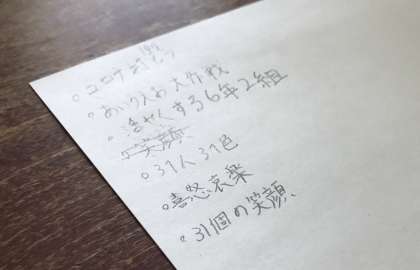 。あいりえお大作戦
。活やくする6年2組
。笑顔
。31人31色
。喜怒哀楽
。31個の笑顔